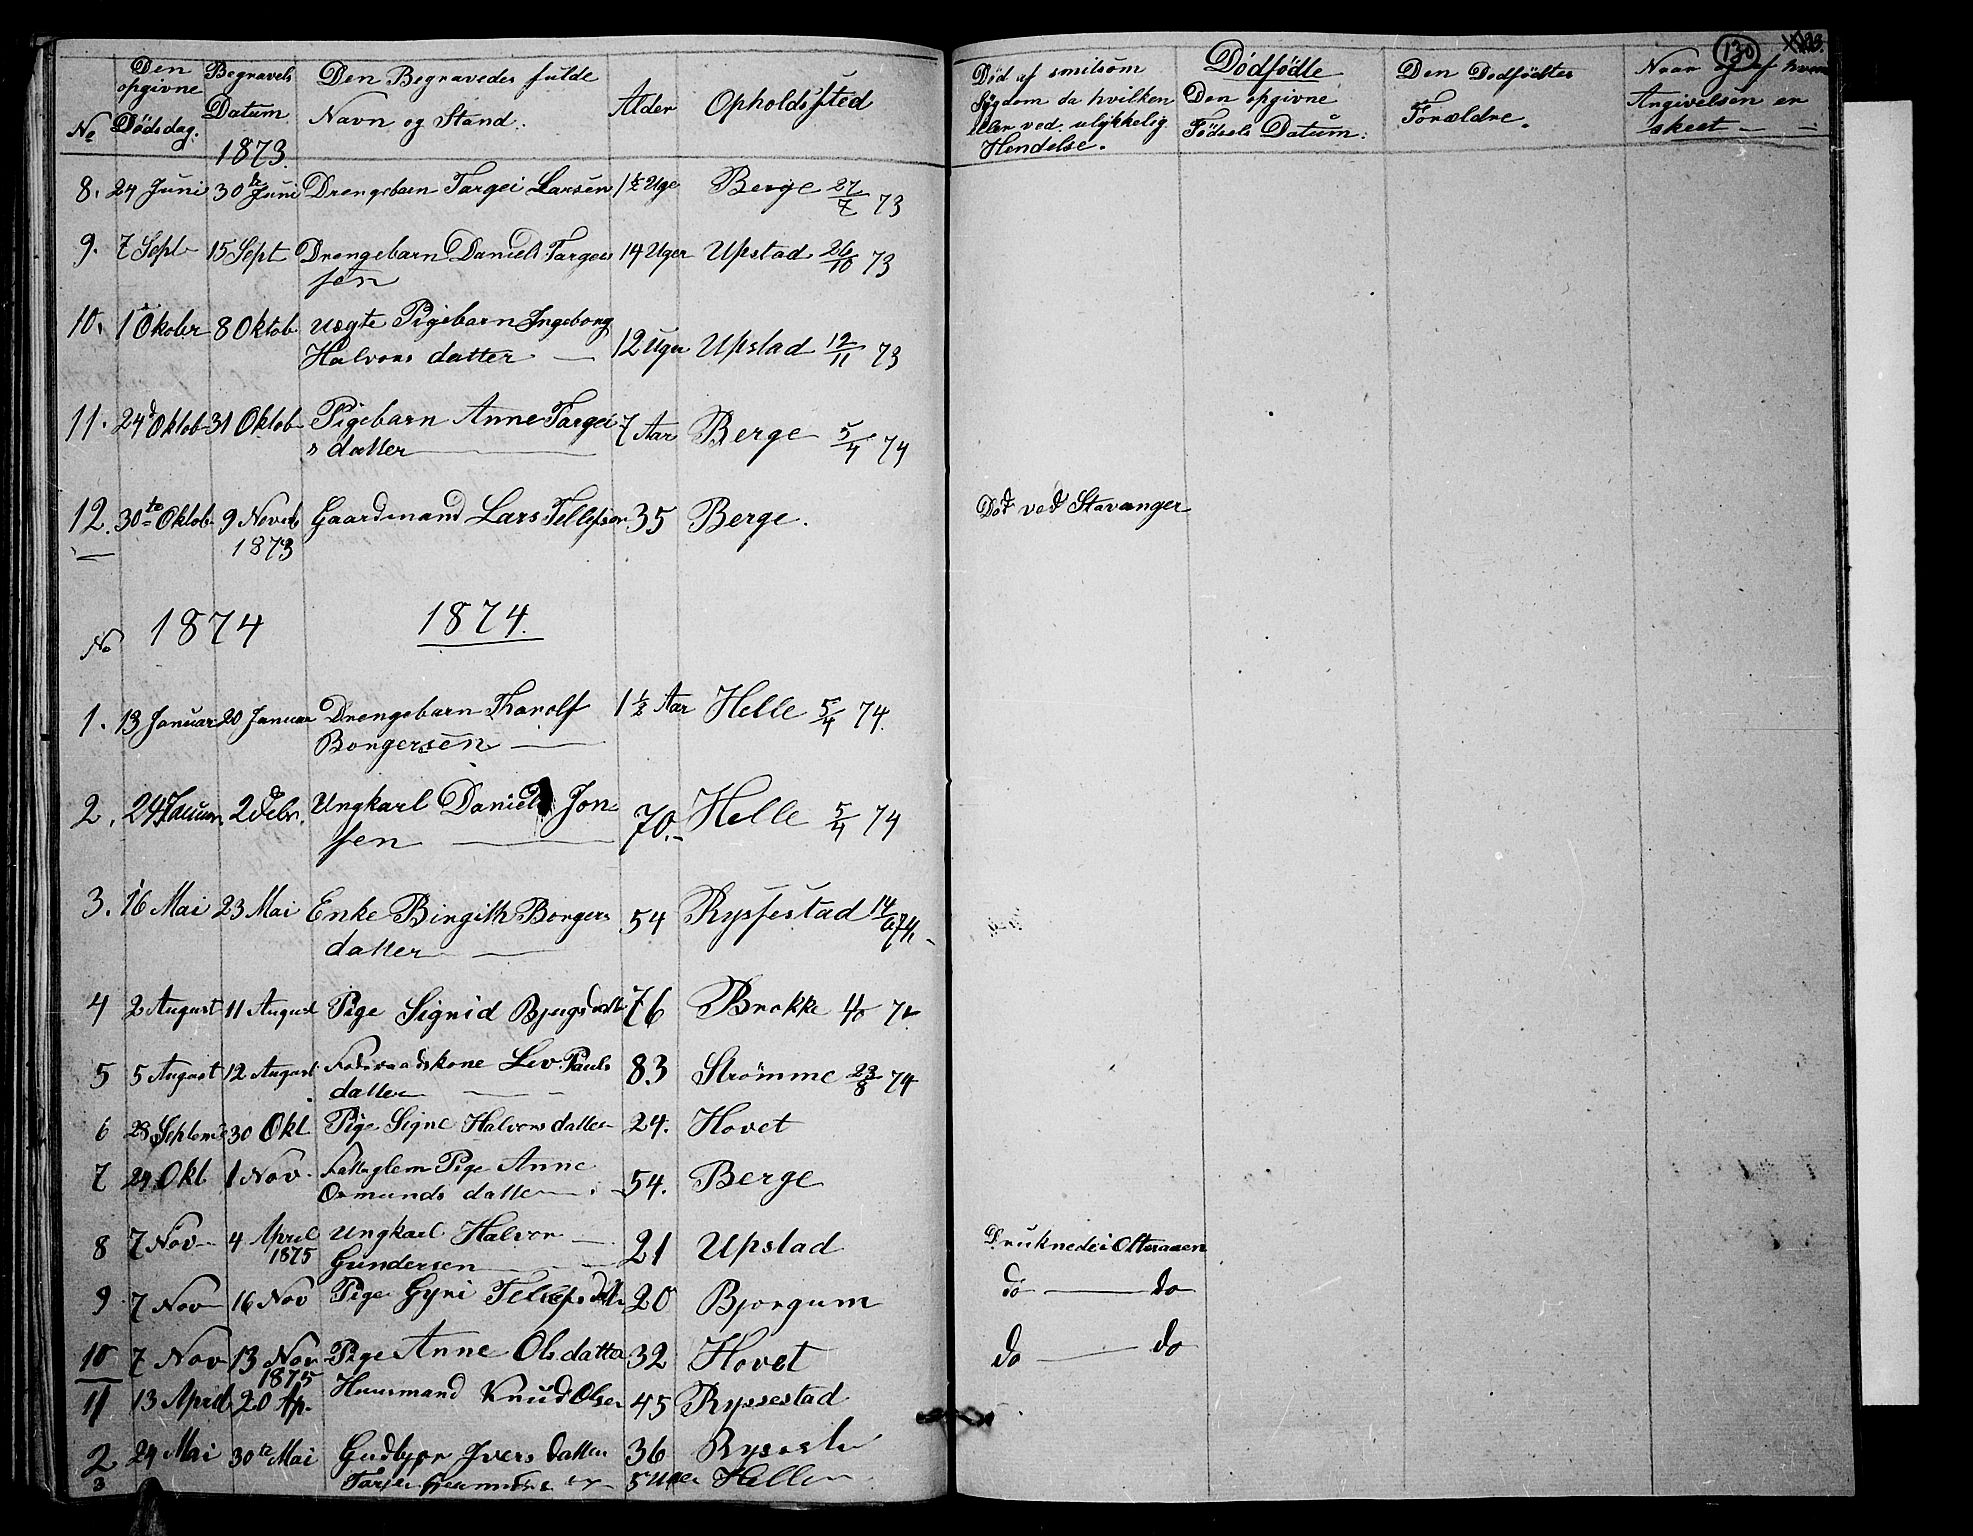 No
Den opgivne Dødsdag.
Begravels Datum
Den Begravedes fulde Navn og Stand.
Alder
Opholdssted
Død af smitsom Sygdom da hvilken eller ved ulykkelig Hendelse.
Dødfødte
Den opgivne Fødsels Datum.
Den Dødfødtes Forældre.
Naar og af hvem Angivelsen er skeet
130
1873
8. 24 Juni 30 Juni Drengebarn Targei Larsen 1½ Uge Berge 27/7 73
9. 7 Sept 15 Sept Drengebarn Daniel Targei 14 Uger Upstad 26/10 73
sen
10. 1 Okober 8 Oktob uegte Pigebarn Ingeborg
Halvors datter 12 Uger Upstad 12/11 73
11. 24d Oktob 31 Oktob Pigebarn Anne Targei 7 Aar Berge 5/4 74
s datter
12. 30te Oktob 9 Noveb Gaardmand Lars Tellefsen 35 Berge. Død ved Stavanger
1873
No 1874 1874.
1. 13 Januar 20 Januar Drengebarn Tharolf 1½ Aar Helle 5/4 74.
Borgersen
2. 24 Januar 2 Febr. Ungkarl Daniel Jon 70. Helle 5/4 74
sen
3. 16 Mai 23 Mai Enke Birgith Borgers 54 Rysfestad 14/6 74
datter
4 2 August 11 August Pige Signid Bjugsdatt 76 Brokke
5 5 August 12 August Føderaadskone Liv Pauls 83 Strømme 23/8 74
datter
6 23 Septem 30 Okt Pige Signe Halvorsdatter 24. Hovet
7 24 Okt 1 Nov. Fattiglem Pige Anne
Osmunds datter 54. Berge
8 7 Nov 4 April Ungkarl Halvor
1875 Gundersen 21 Upstad Druknede i Otteraaen
9 7 Nov 16 Nov Pige Gyri Tellefsdatt 20 Bjorgum do do
10 7 Nov 13 Nov Pige Anne Olsdatter 32 Hovet do do
1875
11 13 April 20 Ap. Huusmand Knud Olsen 45 Ryssestad
2 24 Mai 30te Mai Gudbjor Ivers datter 36
3 5 Uger Helle